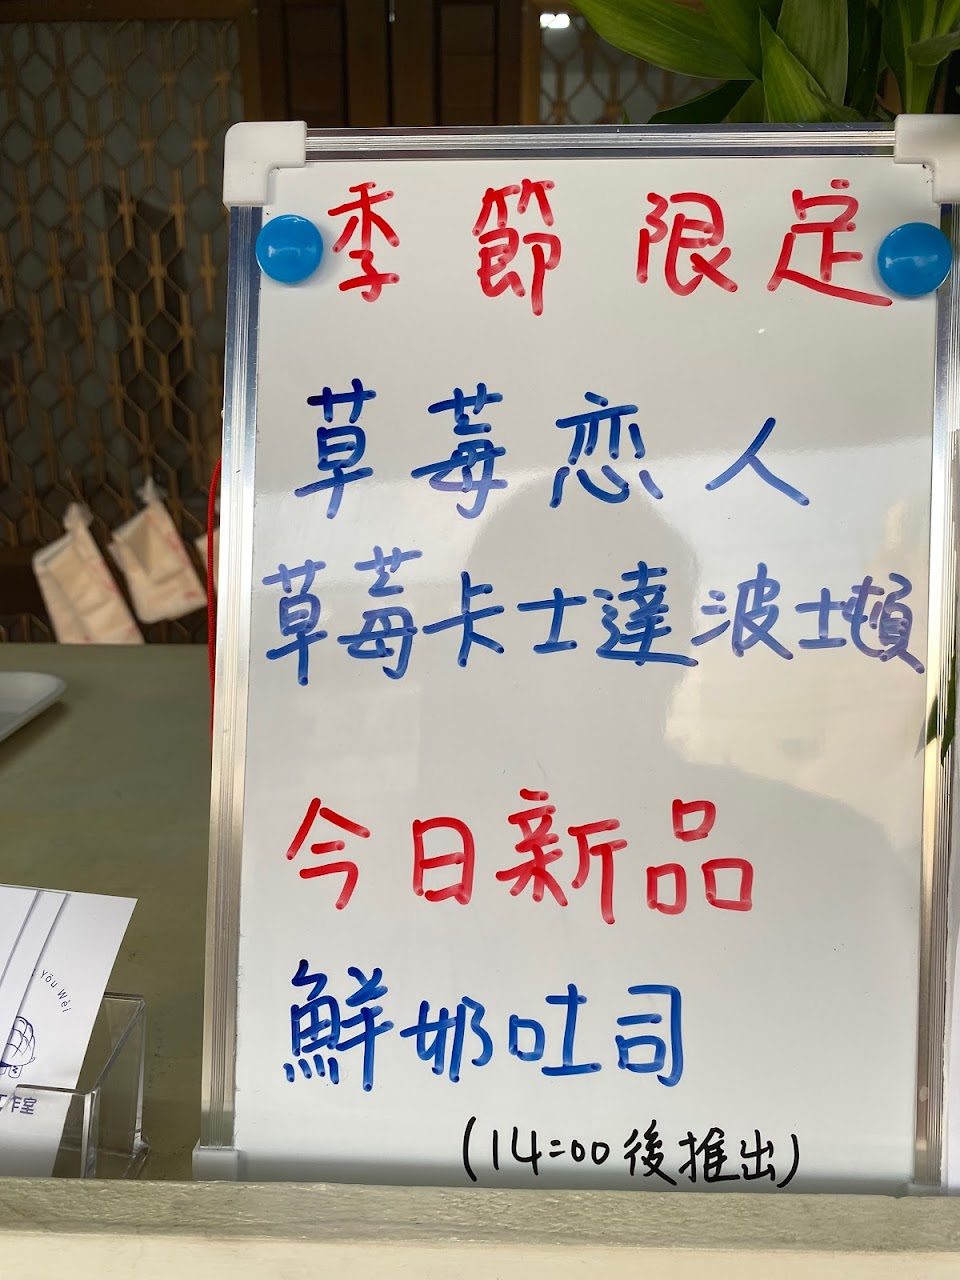 季節限定
草莓恋人
草莓卡士達波士頓
今日新品
鮮奶吐司
(14:00後推出)
Yǒu Wèi
工作室